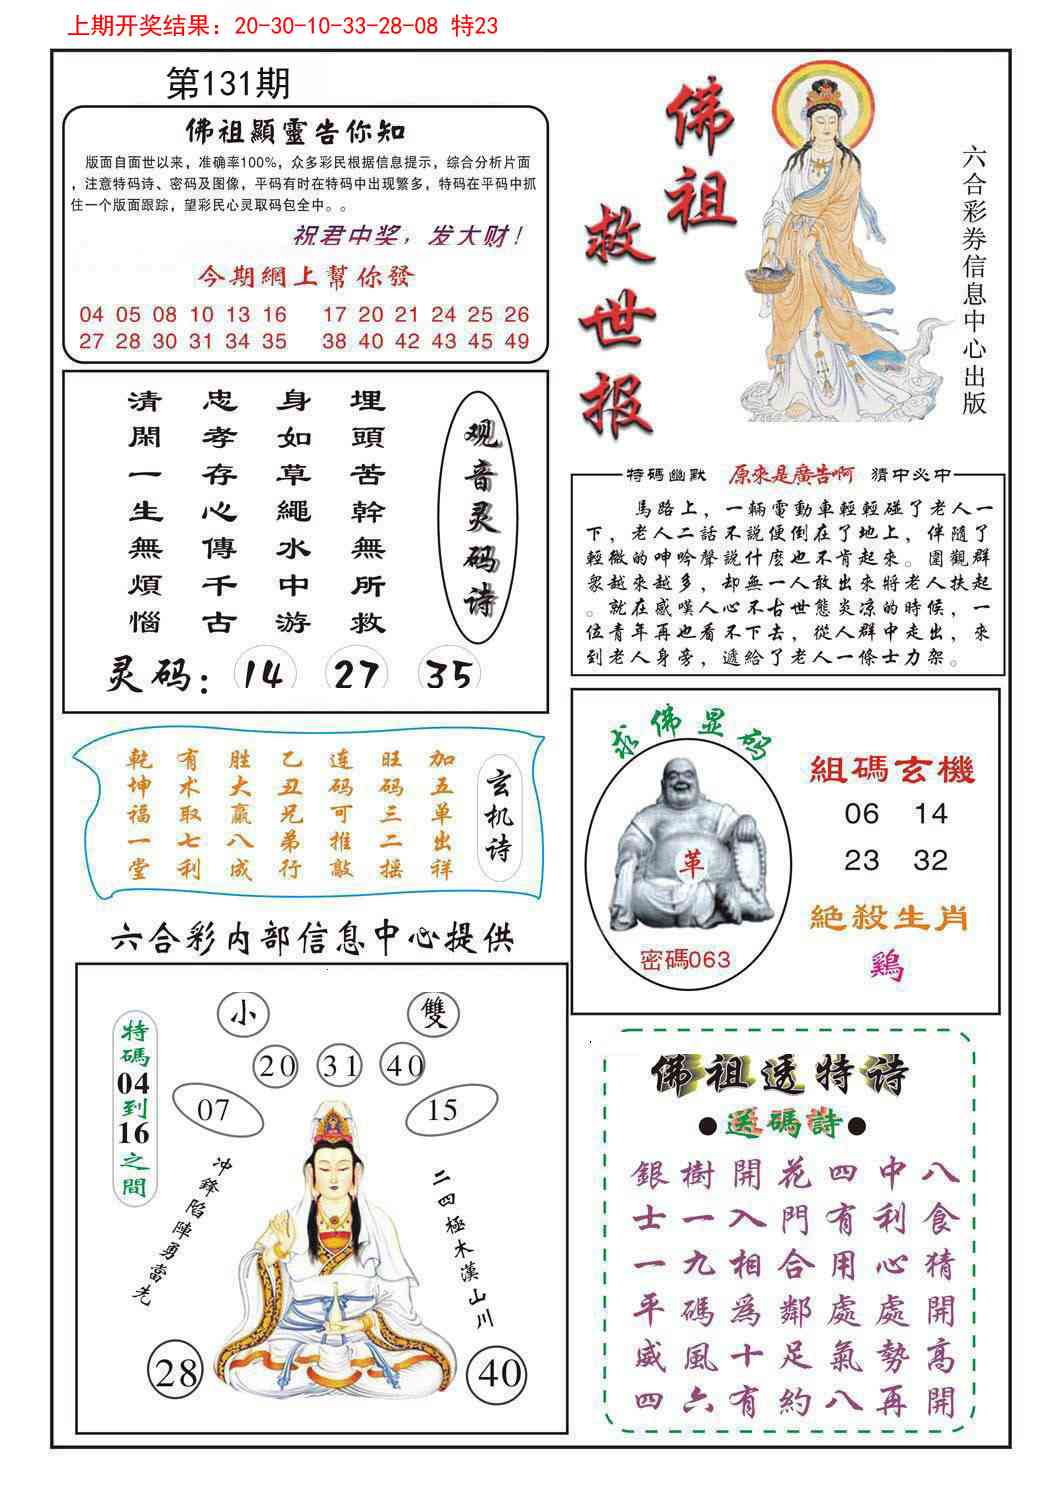 上期开奖结果：20-30-10-33-28-08 特23
第131期
佛祖顯靈告你知
版面自面世以来，准确率100%，众多彩民根据信息提示，综合分析片面
，注意特码诗、密码及图像，平码有时在特码中出现繁多，特码在平码中抓
住一个版面跟踪，望彩民心灵取码包全中。。
祝君中奖，发大财！
今期網上幫你發
04 05 08 10 13 16 17 20 21 24 25 26
27 28 30 31 34 35 38 40 42 43 45 49
佛祖
救世报
六合彩券信息中心出版
埋頭苦幹無所救
身如草繩水中游
忠孝存心傳千古
清閑一生無煩惱
观音灵码诗
灵码：14 27 35
特碼幽默 原來是廣告啊 猜中必中
馬路上，一輛電動車輕輕碰了老人一
下，老人二話不說便倒在了地上，伴隨了
輕微的呻吟聲説什麽也不肯起來。圍觀群
衆越來越多，却無一人敢出來將老人扶起
。就在感嘆人心不古世態炎凉的時候，一
位青年再也看不下去，從人群中走出，來
到老人身旁，遞給了老人一條士力架。
玄机诗
加五单出祥
旺码三二摇
连码可推敲
乙丑兄弟行
胜大赢八成
有术取七利
乾坤福一堂
求佛显码
革
密碼063
組碼玄機
06 14
23 32
絶殺生肖
鷄
六合彩内部信息中心提供
特碼04到16之間
小 雙
20 31 40
07 15
冲鋒陷陣勇當先
二四極木漢山川
28 40
佛祖透特诗
●送碼詩●
銀樹開花四中八
士一入門有利食
一九相合用心猜
平碼爲鄰處處開
威風十足氣勢高
四六有約八再開